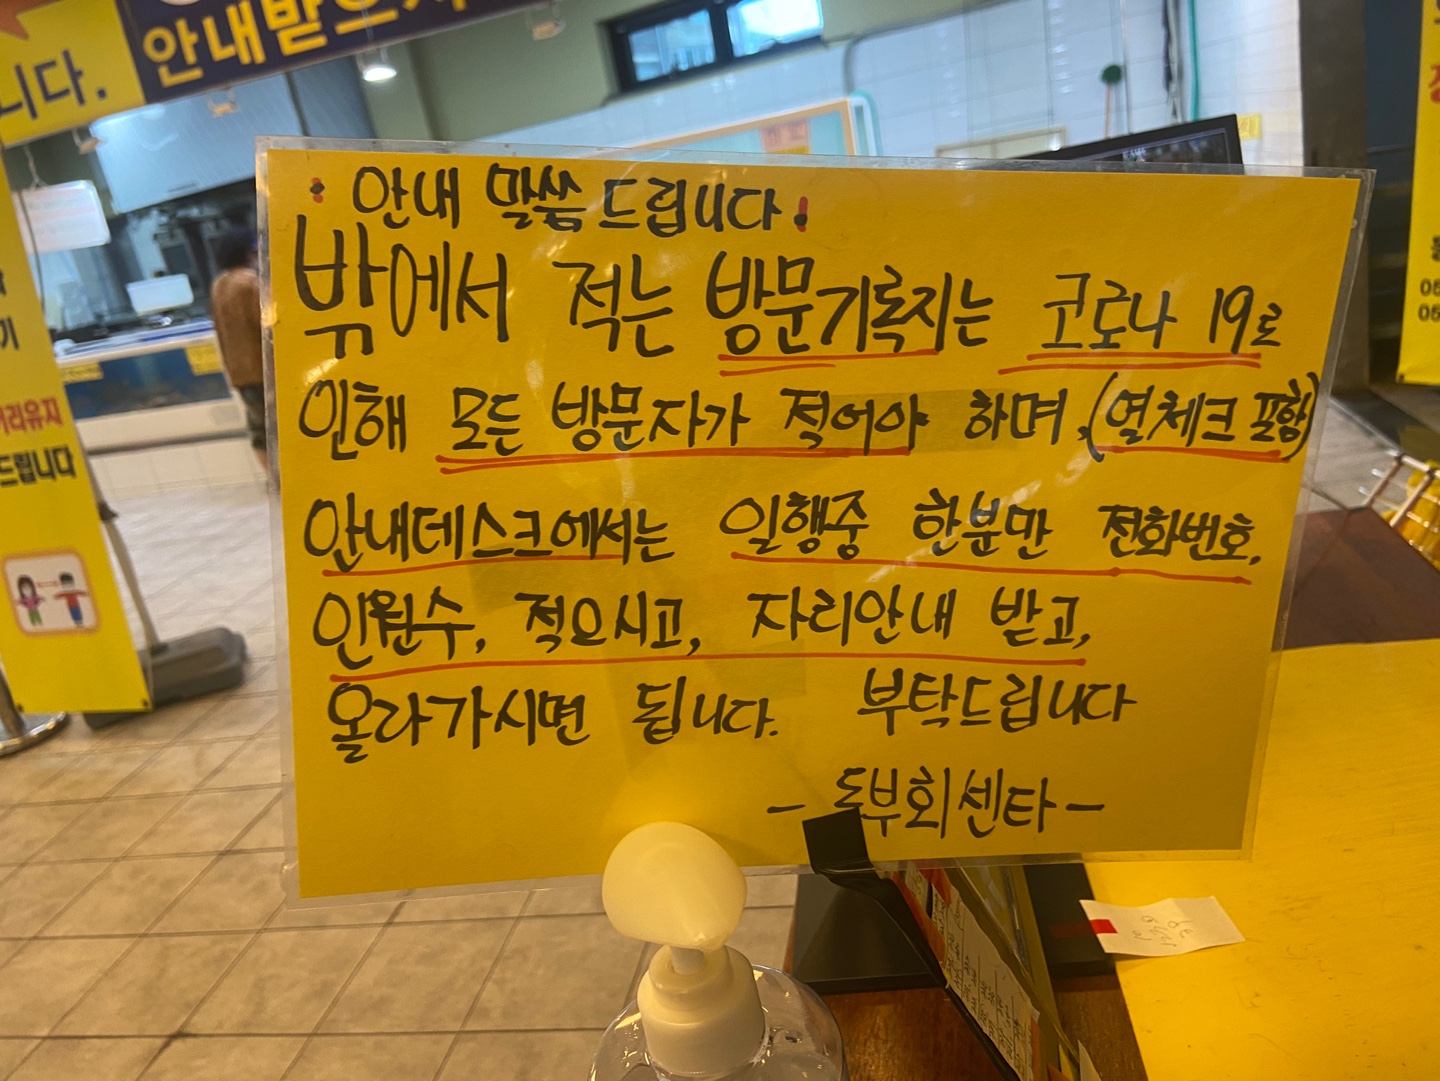 니다.
안내받으시
: 안내 말씀 드립니다:
밖에서 적는 방문기록지는 코로나 19로
인해 모든 방문자가 적어야 하며, (열체크 포함)
안내데스크에서는 일행중 한분만 전화번호,
인원수, 적으시고, 자리안내 받고,
올라가시면 됩니다. 부탁드립니다
- 동부회센타 -
기
거리유지
드립니다